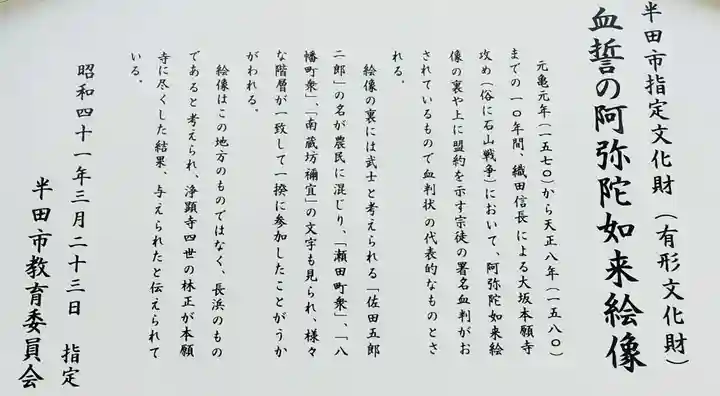 半田市指定文化財（有形文化財）
血誓の阿弥陀如来絵像
元亀元年（一五七〇）から天正八年（一五八〇）
までの一〇年間、織田信長による大坂本願寺
攻め（俗に石山戦争）において、阿弥陀如来絵
像の裏や上に盟約を示す宗徒の署名血判がお
されているもので血判状の代表的なものとさ
れる。
絵像の裏には武士と考えられる「佐田五郎
二郎」の名が農民に混じり、「瀬田町衆」、「八
幡町衆」、「南蔵坊禰宜」の文字も見られ、様々
な階層が一致して一揆に参加したことがうか
がわれる。
絵像はこの地方のものではなく、長浜のもの
であると考えられ、浄顕寺四世の林正が本願
寺に尽くした結果、与えられたと伝えられて
いる。
昭和四十一年三月二十三日　指定
半田市教育委員会